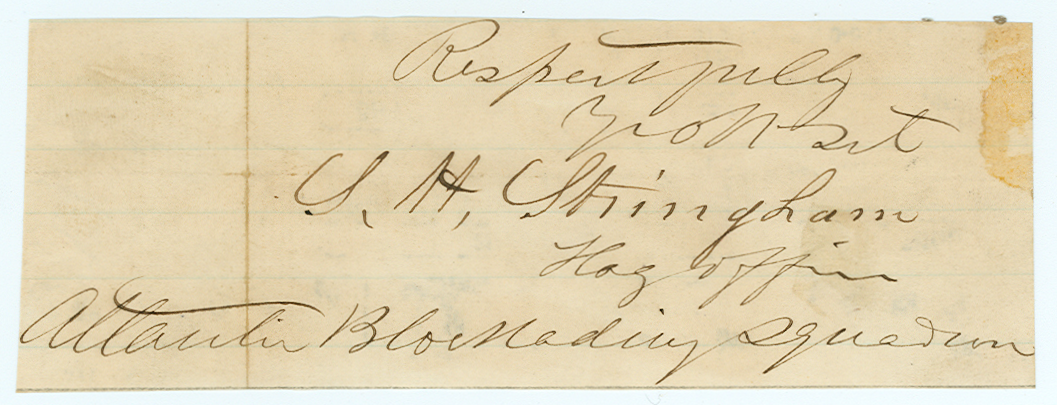 Respectfully
Yr Ob Set
S. H. Stringham
Flag Officer
Atlantic Blockading Squadron